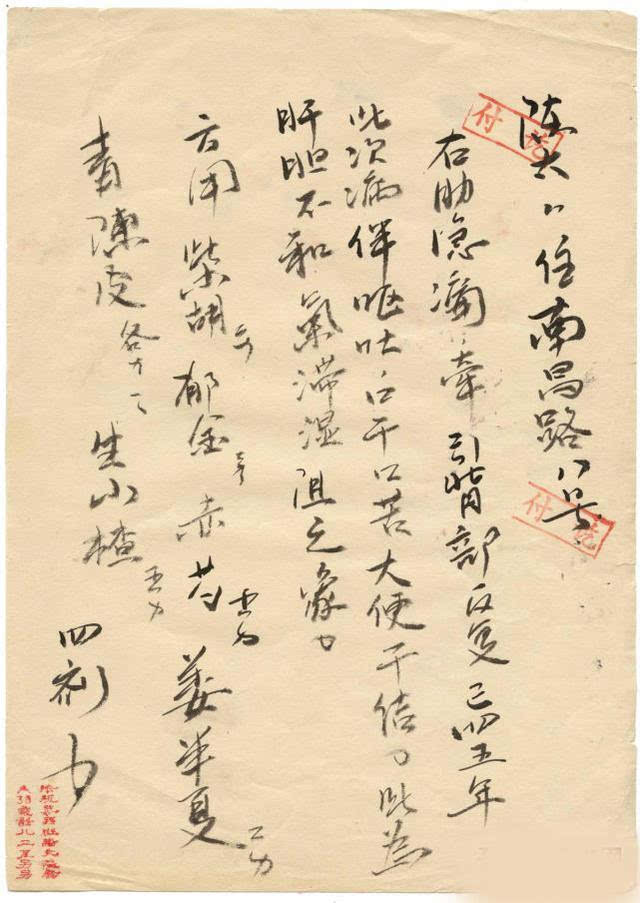 陈太ㄑ住南昌路八号
右肋隐痛牵引背部反复三四五年
此次病伴呕吐口干口苦大便干结此为
肝胆不和气滞湿阻之象
方用柴胡 郁金 赤芍 姜半夏
青陈皮各 生山楂
四剂
付讫
付讫